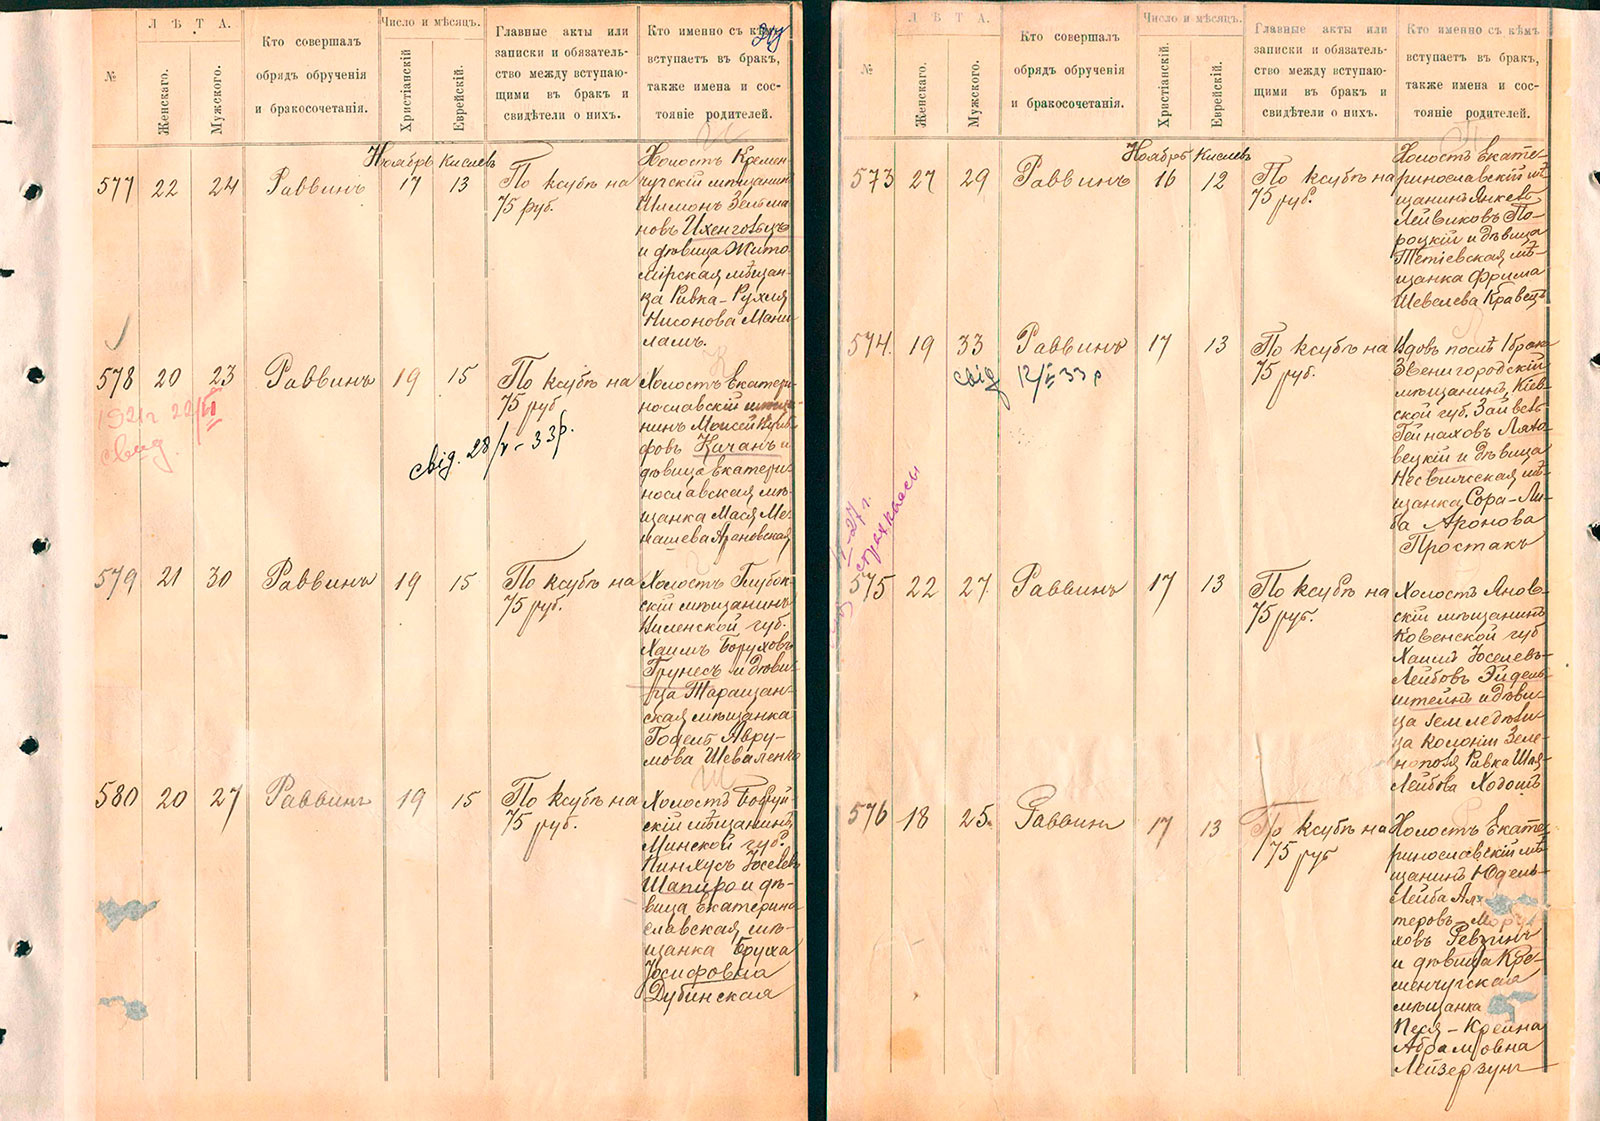 №
Л Ѣ Т А.
Женскаго.
Мужского.
Кто совершалъ
обрядъ обрученія
и бракосочетанія.
Число и мѣсяцъ.
Христіанскій
Еврейскій.
Главные акты или
записки и обязатель-
ство между вступаю-
щими въ бракъ и
свидѣтели о нихъ.
Кто именно съ кѣмъ
вступаетъ въ бракъ,
также имена и сос-
тояніе родителей.
Ноябрь Кислевъ
577 22 24 Раввинъ 17 13
По ксубѣ на
75 руб.
Холостъ Кремен-
чугскій мѣщанинъ
Шлиомъ Зельма
новъ
и дѣвица Жито
мірская мѣщан-
ка Ривка-Рухля
Нисонова Мани
ламъ.
578 20 23 Раввинъ 19 15
По ксубѣ на
75 руб
1921г 22/VI
свид.
свід. 28/V - 33р.
Холостъ Екатери-
нославскій мѣща-
нинъ Моисей
фовъ Качанъ и
дѣвица екатери-
нославская мѣ-
щанка Мася Ме-
нашева Арановская
579 21 30 Раввинъ 19 15
По ксубѣ на
75 руб.
Холостъ Глубок-
скій мѣщанинъ
Виленской губ.
Хаимъ Боруховъ
Грунесъ и дѣви-
ца Таращан-
ская мѣщанка
Годель Авру-
мова Шеваленко
580 20 27 Раввинъ 19 15
По ксубѣ на
75 руб.
Холостъ Бобруй-
скій мѣщанинъ
Минской губ.
Пинхусъ Іоселевъ
Шапиро и дѣ-
вица Екатерино
славская мѣ-
щанка Бруха
Іосифовна
Дубинская
№
Л Ѣ Т А.
Женскаго.
Мужского.
Кто совершалъ
обрядъ обрученія
и бракосочетанія.
Число и мѣсяцъ.
Христіанскій
Еврейскій.
Главные акты или
записки и обязатель-
ство между вступаю-
щими въ бракъ и
свидѣтели о нихъ.
Кто именно съ кѣмъ
вступаетъ въ бракъ,
также имена и сос-
тояніе родителей.
Ноябрь Кислевъ
573 27 29 Раввинъ 16 12
По ксубѣ на
75 руб.
Холостъ Екате-
ринославскій мѣ
щанинъ Янкель
Лейвиковъ По-
роцкій и дѣвица
Тетіевская мѣ-
щанка Фрима
Шевелева Кравецъ
574. 19 33 Раввинъ 17 13
По ксубѣ на
75 руб.
свід 12/II 33 р
Вдовъ послѣ 1 брака
Звенигородскій
мѣщанинъ, Кіев-
ской губ. Зайвель
Гейнаховъ Ляхо-
вецкій и дѣвица
Несвижская мѣ-
щанка Сора-Ли-
ба Аронова
Простакъ
27 г.
страхкассы
575 22 27 Раввинъ 17 13
По ксубѣ на
75 руб.
Холостъ Янов-
скій мѣщанинъ
Ковенской губ
Хаимъ Іоселевъ-
Лейбовъ Эйдель-
штейнъ и дѣви-
ца Земледѣли
ца колоніи Зеле-
нополя Ривка Шая-
Лейбова Ходошъ
576 18 25. Раввинъ 17 13
По ксубѣ на
75 руб
Холостъ Екате-
ринославскій мѣ
щанинъ Юдель-
Лейба
теровъ-Мору
ховъ Ревзинъ
и дѣвица Кре-
менчугская
мѣщанка
Песя-Крейна
Абрамовна
Лейзерзунъ